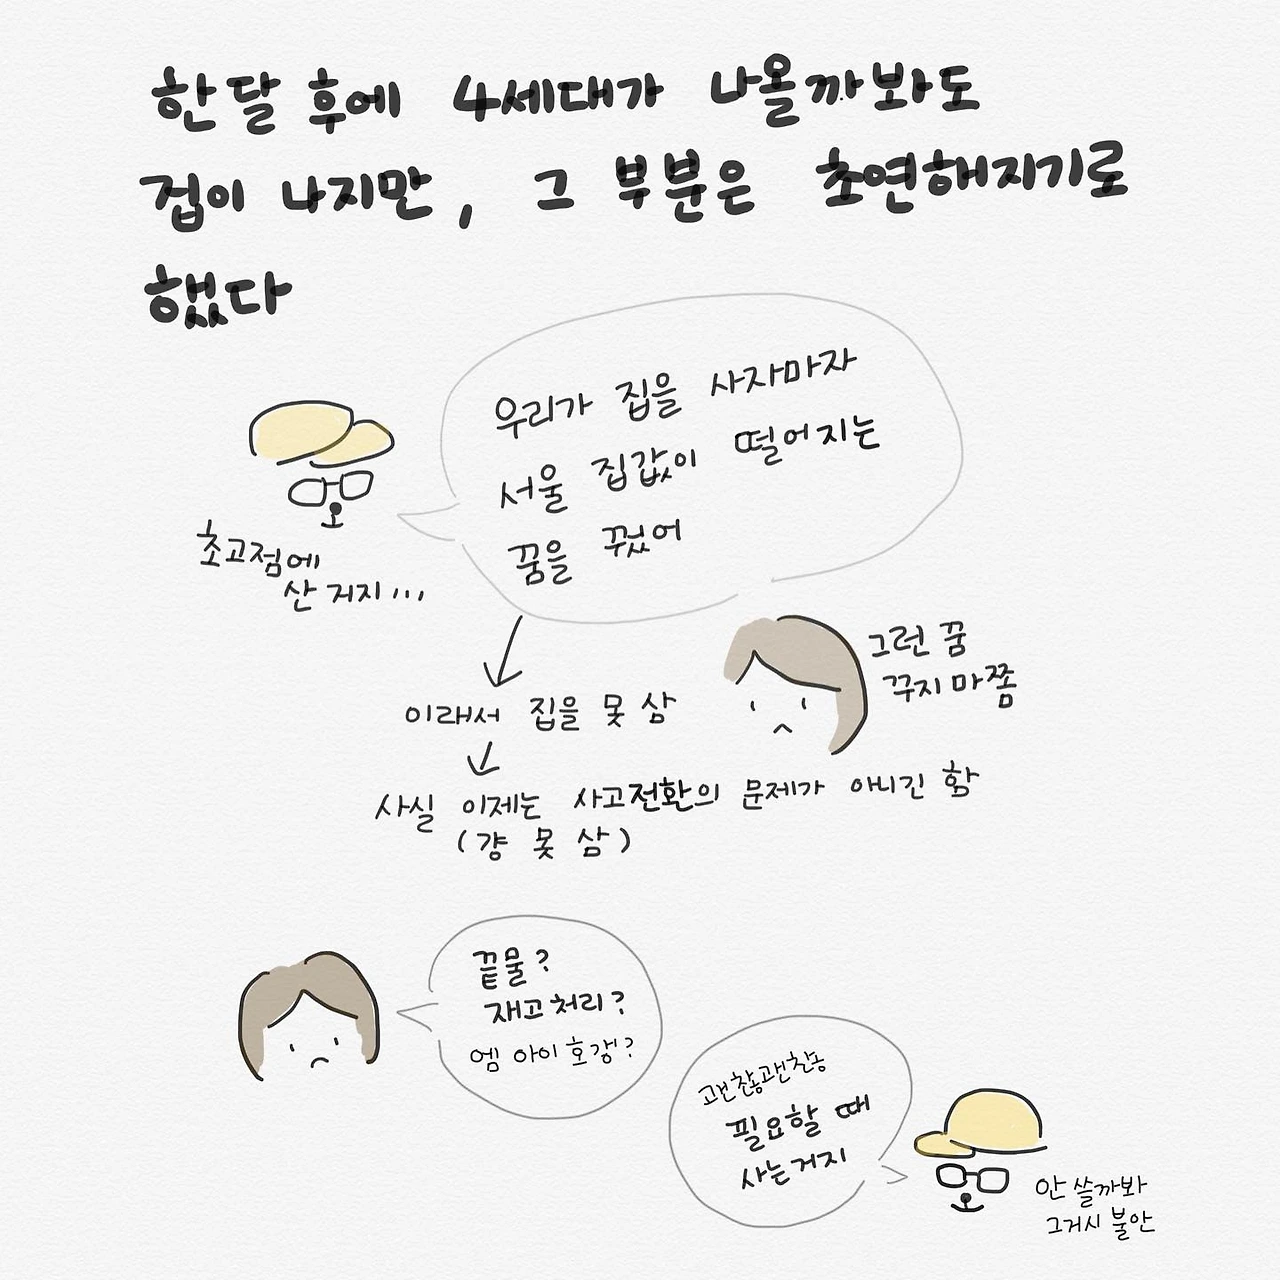 한달 후에 4세대가 나올까봐도
겁이 나지만, 그 부분은 초연해지기로
했다
우리가 집을 사자마자
서울 집값이 떨어지는
꿈을 꿨어
초고점에
산 거지...
그런 꿈
꾸지 마쫌
이래서 집을 못 삼
사실 이제는 사고전환의 문제가 아니긴 함
(걍 못 삼)
끝물?
재고처리?
엠 아이 호갱?
괜찮괜찮
필요할 때
사는거지
안 쓸까봐
그거시 불안